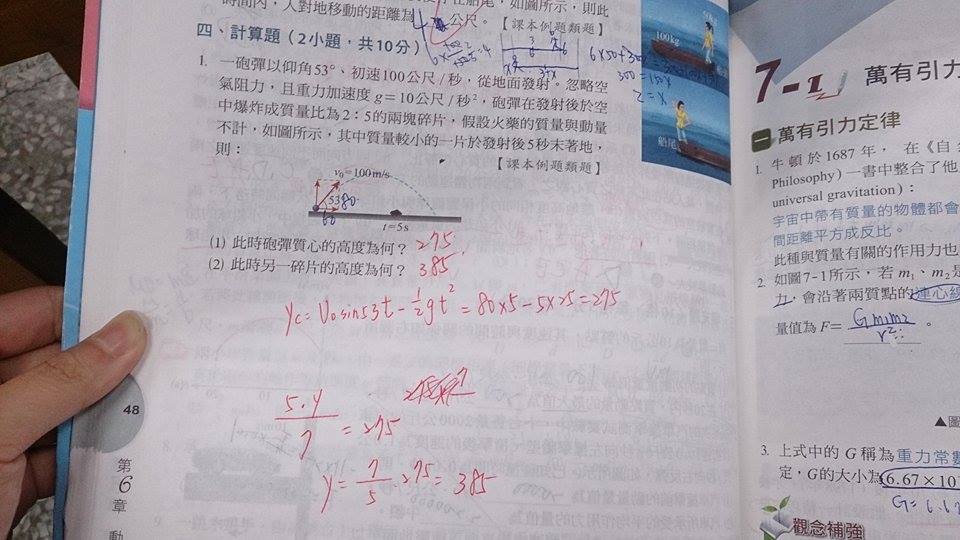 時間內，人對地移動的距離為 4 公尺。【課本例題類題】
四、計算題（2小題，共10分）
1. 一砲彈以仰角53°、初速100公尺/秒，從地面發射。忽略空
氣阻力，且重力加速度 g＝10公尺/秒²，砲彈在發射後於空
中爆炸成質量比為2：5的兩塊碎片，假設火藥的質量與動量
不計，如圖所示，其中質量較小的一片於發射後5秒末著地，
則： 【課本例題類題】
v₀＝100 m/s
53° 80
60
t＝5 s
(1) 此時砲彈質心的高度為何？ 275
(2) 此時另一碎片的高度為何？ 385
yc = V₀ sin53 t - 1/2 g t² = 80×5 - 5×25 = 275
5·y / 7 = 275
y = 7/5 275 = 385
48
第
6
章
動
100kg
船尾
7-1 萬有引力
一 萬有引力定律
1. 牛頓於1687年，在《自
Philosophy)一書中整合了他
universal gravitation)：
宇宙中帶有質量的物體都會
間距離平方成反比。
此種與質量有關的作用力也
2. 如圖7-1所示，若 m₁、m₂
力，會沿著兩質點的連心線
量值為 F＝ G m₁m₂ / r² 。
▲圖
3. 上式中的 G 稱為重力常數
定，G的大小為 6.67×10
G = 6.6
觀念補強